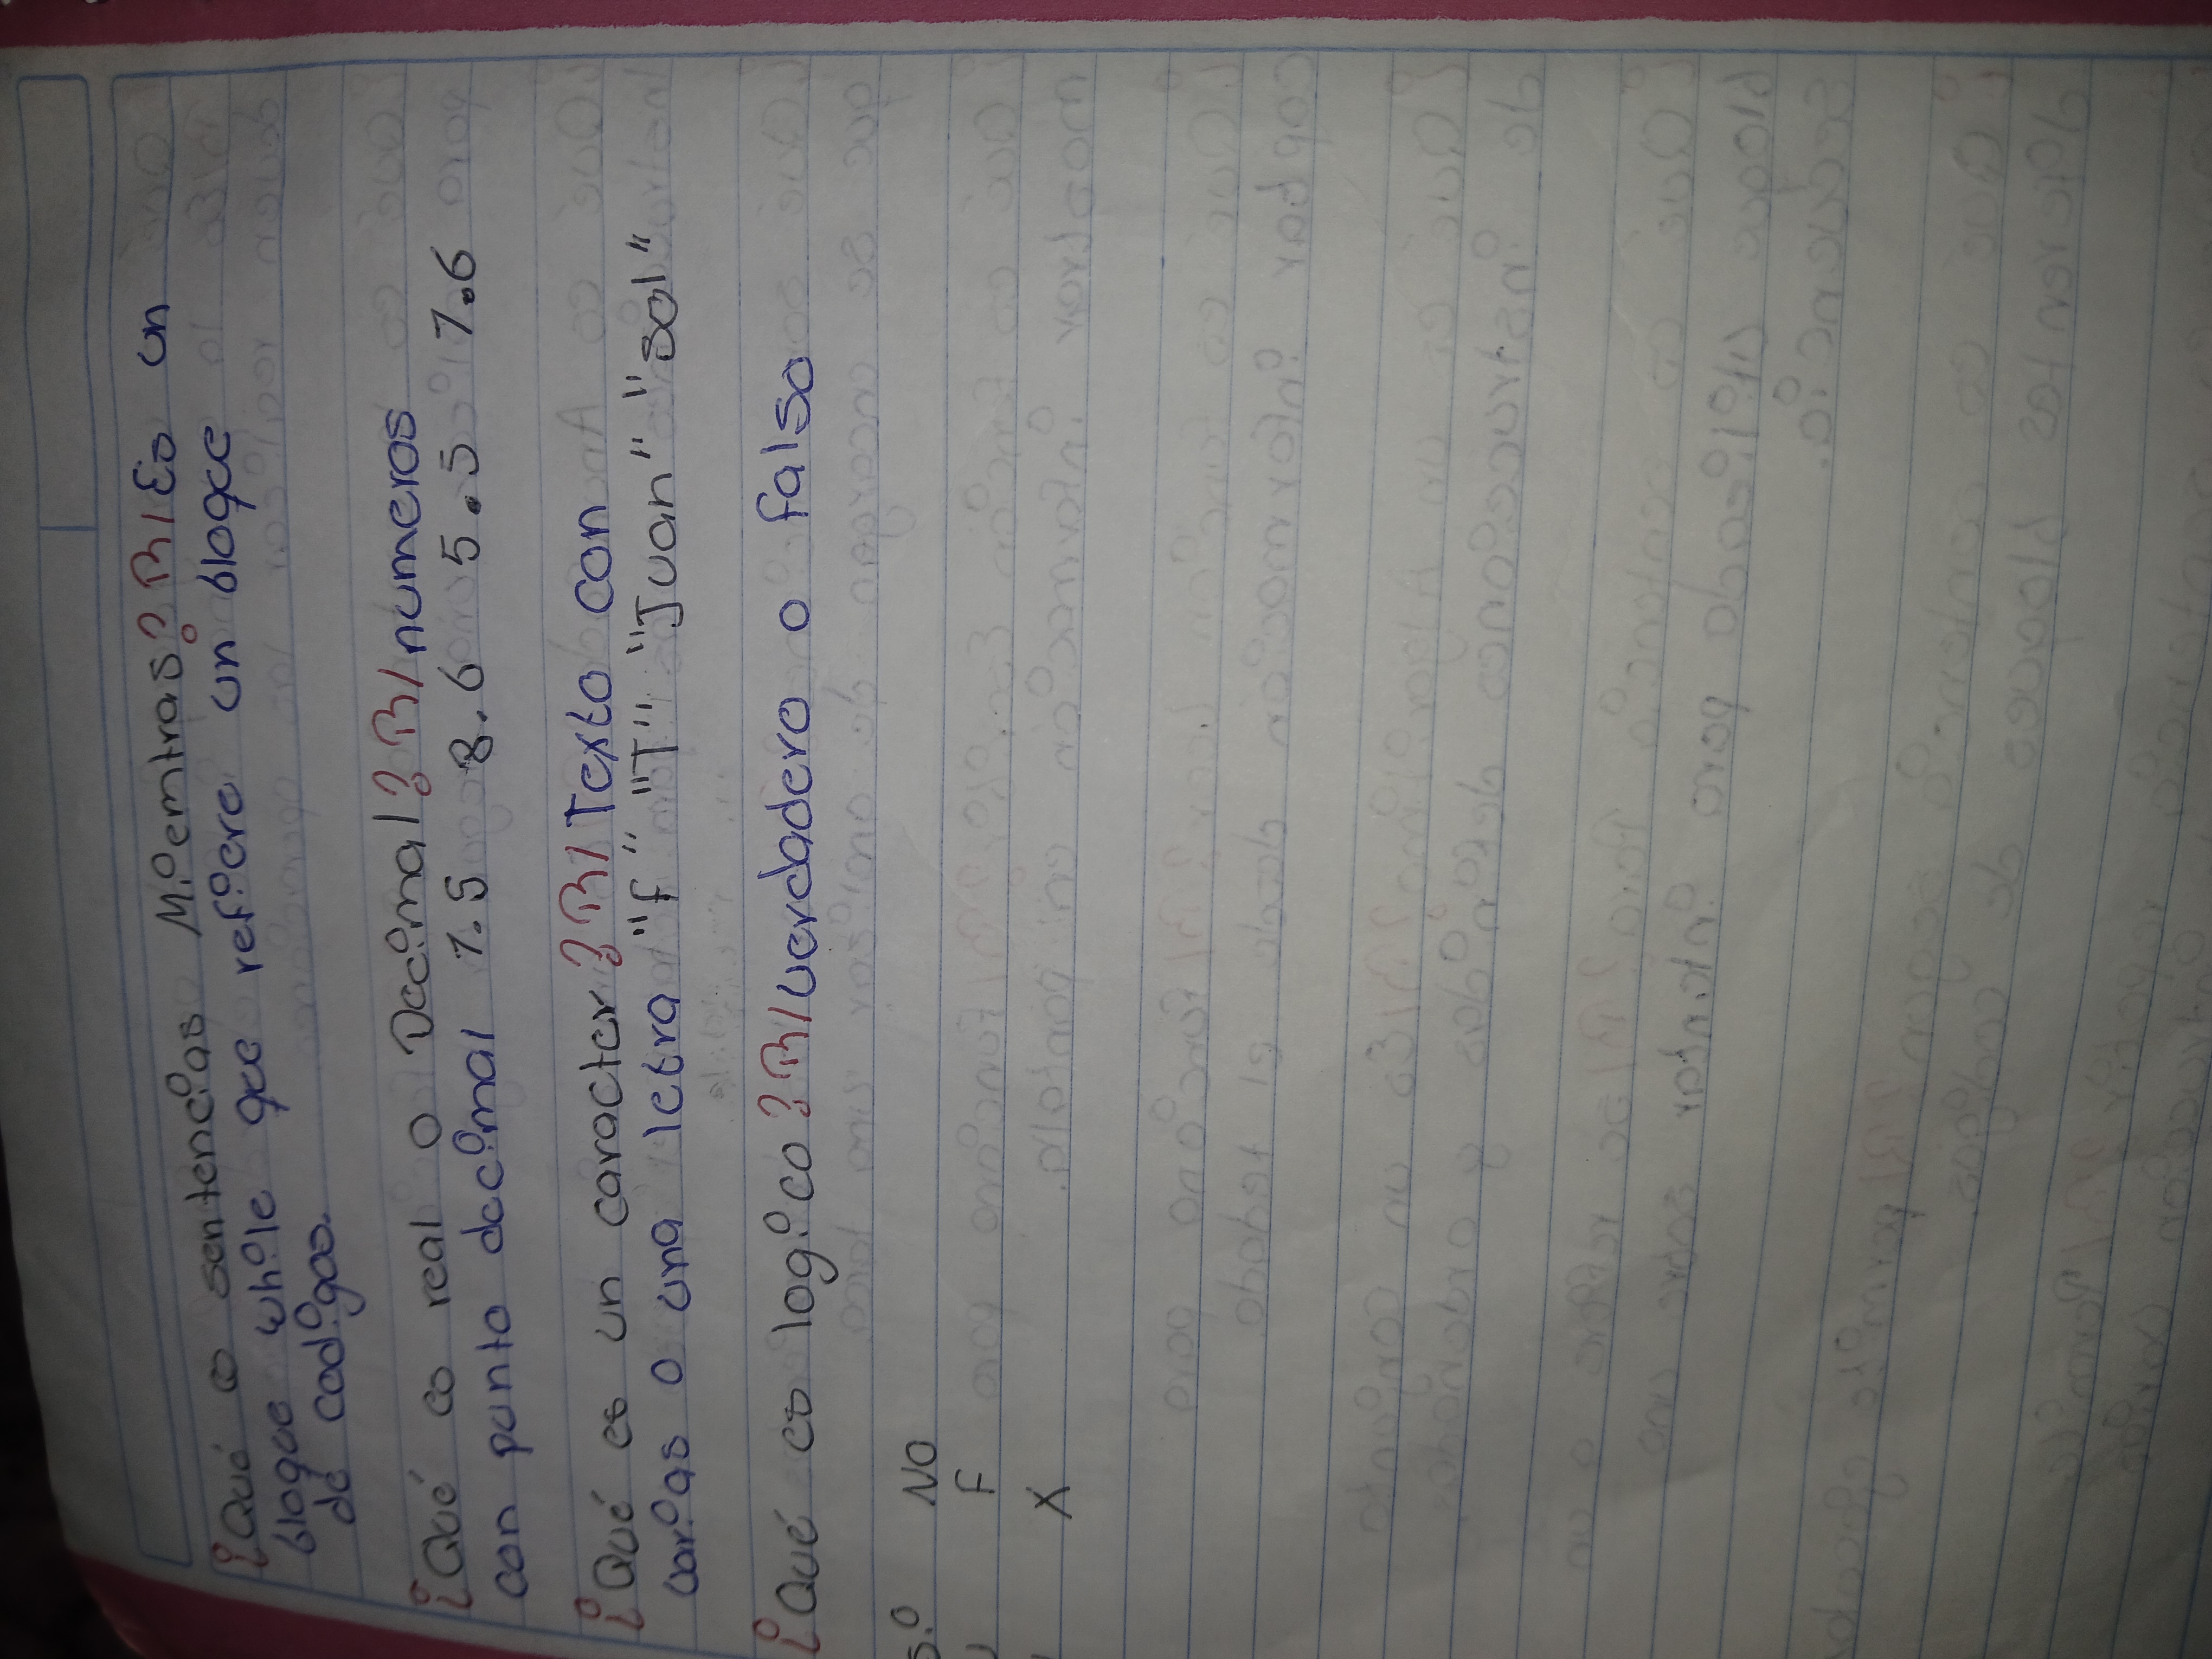 ¿Qué es sentencias Mientras? R/ Es un
bloque while que refiere un bloque
de codigo.
¿Qué es real o Decimal? R/ numeros
con punto decimal 7.5 8.6 5.5 7.6
¿Qué es un caracter? R/ Texto con
varias o una letra "f" "T" "Juan" "sol"
¿Qué es logico? R/ verdadero o falso
si NO
F
X